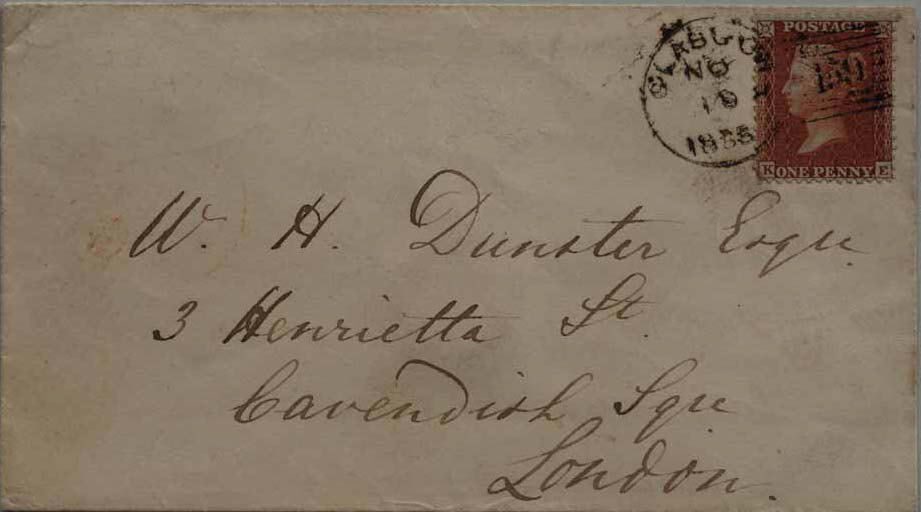 GLASGOW
NO
1855
POSTAGE
159
K ONE PENNY. E
W. H. Dunster Esqre
3 Henrietta St.
Cavendish Sqre
London.